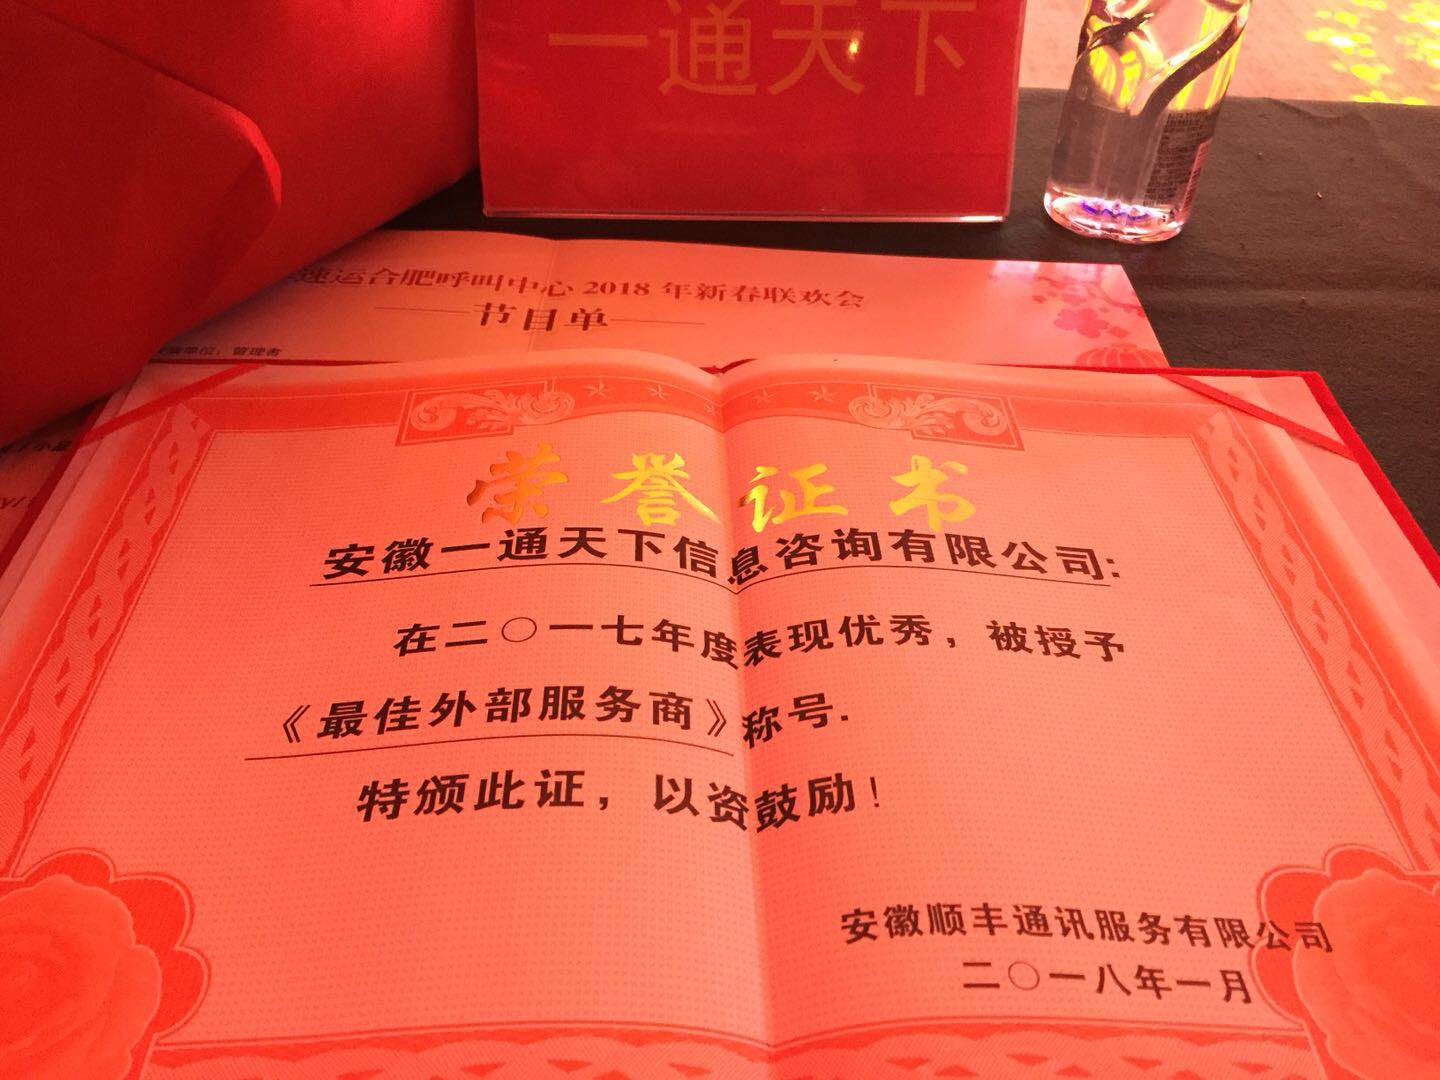 一通天下
速运合肥呼叫中心 2018 年新春联欢会
节目单
单位：管理者
荣誉证书
安徽一通天下信息咨询有限公司:
在二〇一七年度表现优秀，被授予
《最佳外部服务商》称号.
特颁此证，以资鼓励！
安徽顺丰通讯服务有限公司
二〇一八年一月